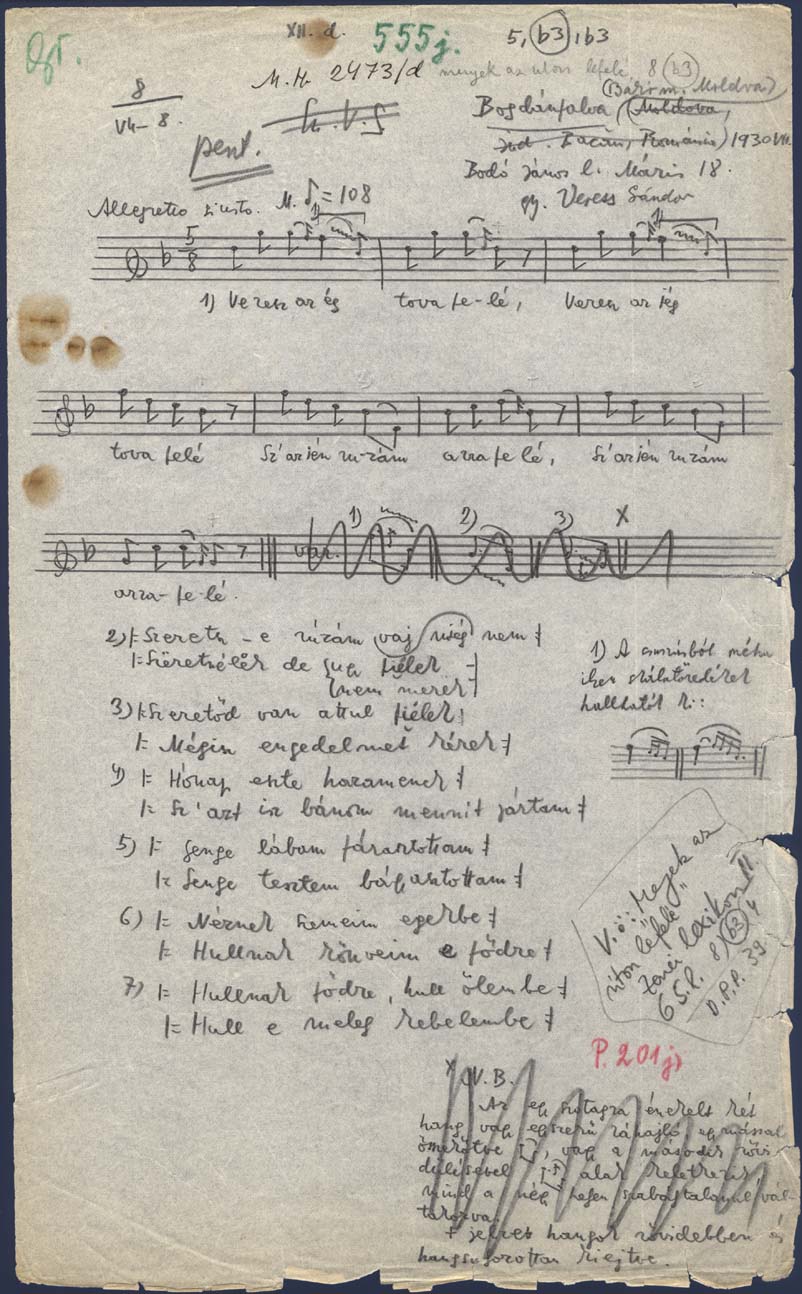 XII. d. 555j. 5, b3 1b3
M.H. 2473/d menyek az uton lefelé 8 b3
8
VII – 8.
pent.
Bogdánfalva (Moldova,
(Bákó m. Moldva)
jud. Bacău, Románia) 1930 VIII.
Bodó János l. Máris 18.
gy. Veress Sándor
Allegretto giusto. M. ♪ = 108
5
8
1) Veresz az ég tova fe-lé, Veresz az ég
tova felé Sz' az ién ru-zám arra fe lé, Sz' az ién ruzám
arra-fe-lé.
var. 1) 2) 3) X
2) |: Szeretsz-e rúzám vaj niég nem :|
|: Szeretnélek de ug fiélek :|
nem merek
3) |: Szeretőd van attul fiélek :|
|: Mégisz engedelmet kérek :|
4) |: Hónap eszte hazamenek :|
|: Sz' azt isz bánom mennit jártam :|
5) |: Genge lábam fárasztottam :|
|: Genge tesztem bágyasztottam :|
6) |: Néznek szemeim egekbe :|
|: Hullnak könveim e fődre :|
7) |: Hullnak fődre, hull ölembe :|
|: Hull e meleg kebelembe :|
1) A
hallhatók ki:
V.ö.: Megyek az
úton lefelé"
Zenei lexikon II.
6 S.P. 8 b3 4
D.P.P. 39
P. 201j)
X N.B.
Az egy szótagra énekelt két
hang, vagy egyszerű ráhajló egymással
vagy a második rövi-
dülésével alak keletkezik
mind a négy helyen szabálytalanul vál-
takozva.
+ jelzet hangok rövidebben és
hangsúlyozottan kiejtve.